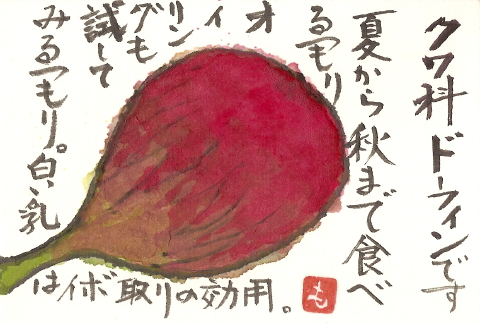 クワ科ドーフィンです
夏から秋まで食べ
るつもり
オ
イ
リン
グも
試して
みるつもり。白い乳
は イボ取りの効用。
も